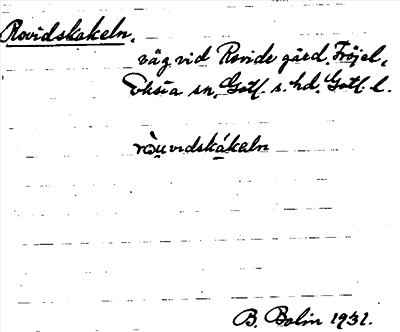 Rovidskakeln,
väg vid Rovide gård, Fröjel,
Eksta sn, Gotl. s. hd, Gotl. l.
ròu̯vidskákəln
B. Bolin 1931.